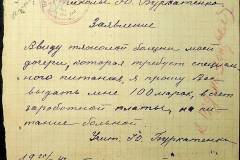 Заявление
Ввиду тяжелой болезни моей
дочери, которая требует специаль
ного питания, я прошу Вас
выдать мне 100 марок, в счет
заработной платы, на пи
тание больной
Ю. Буркатенко